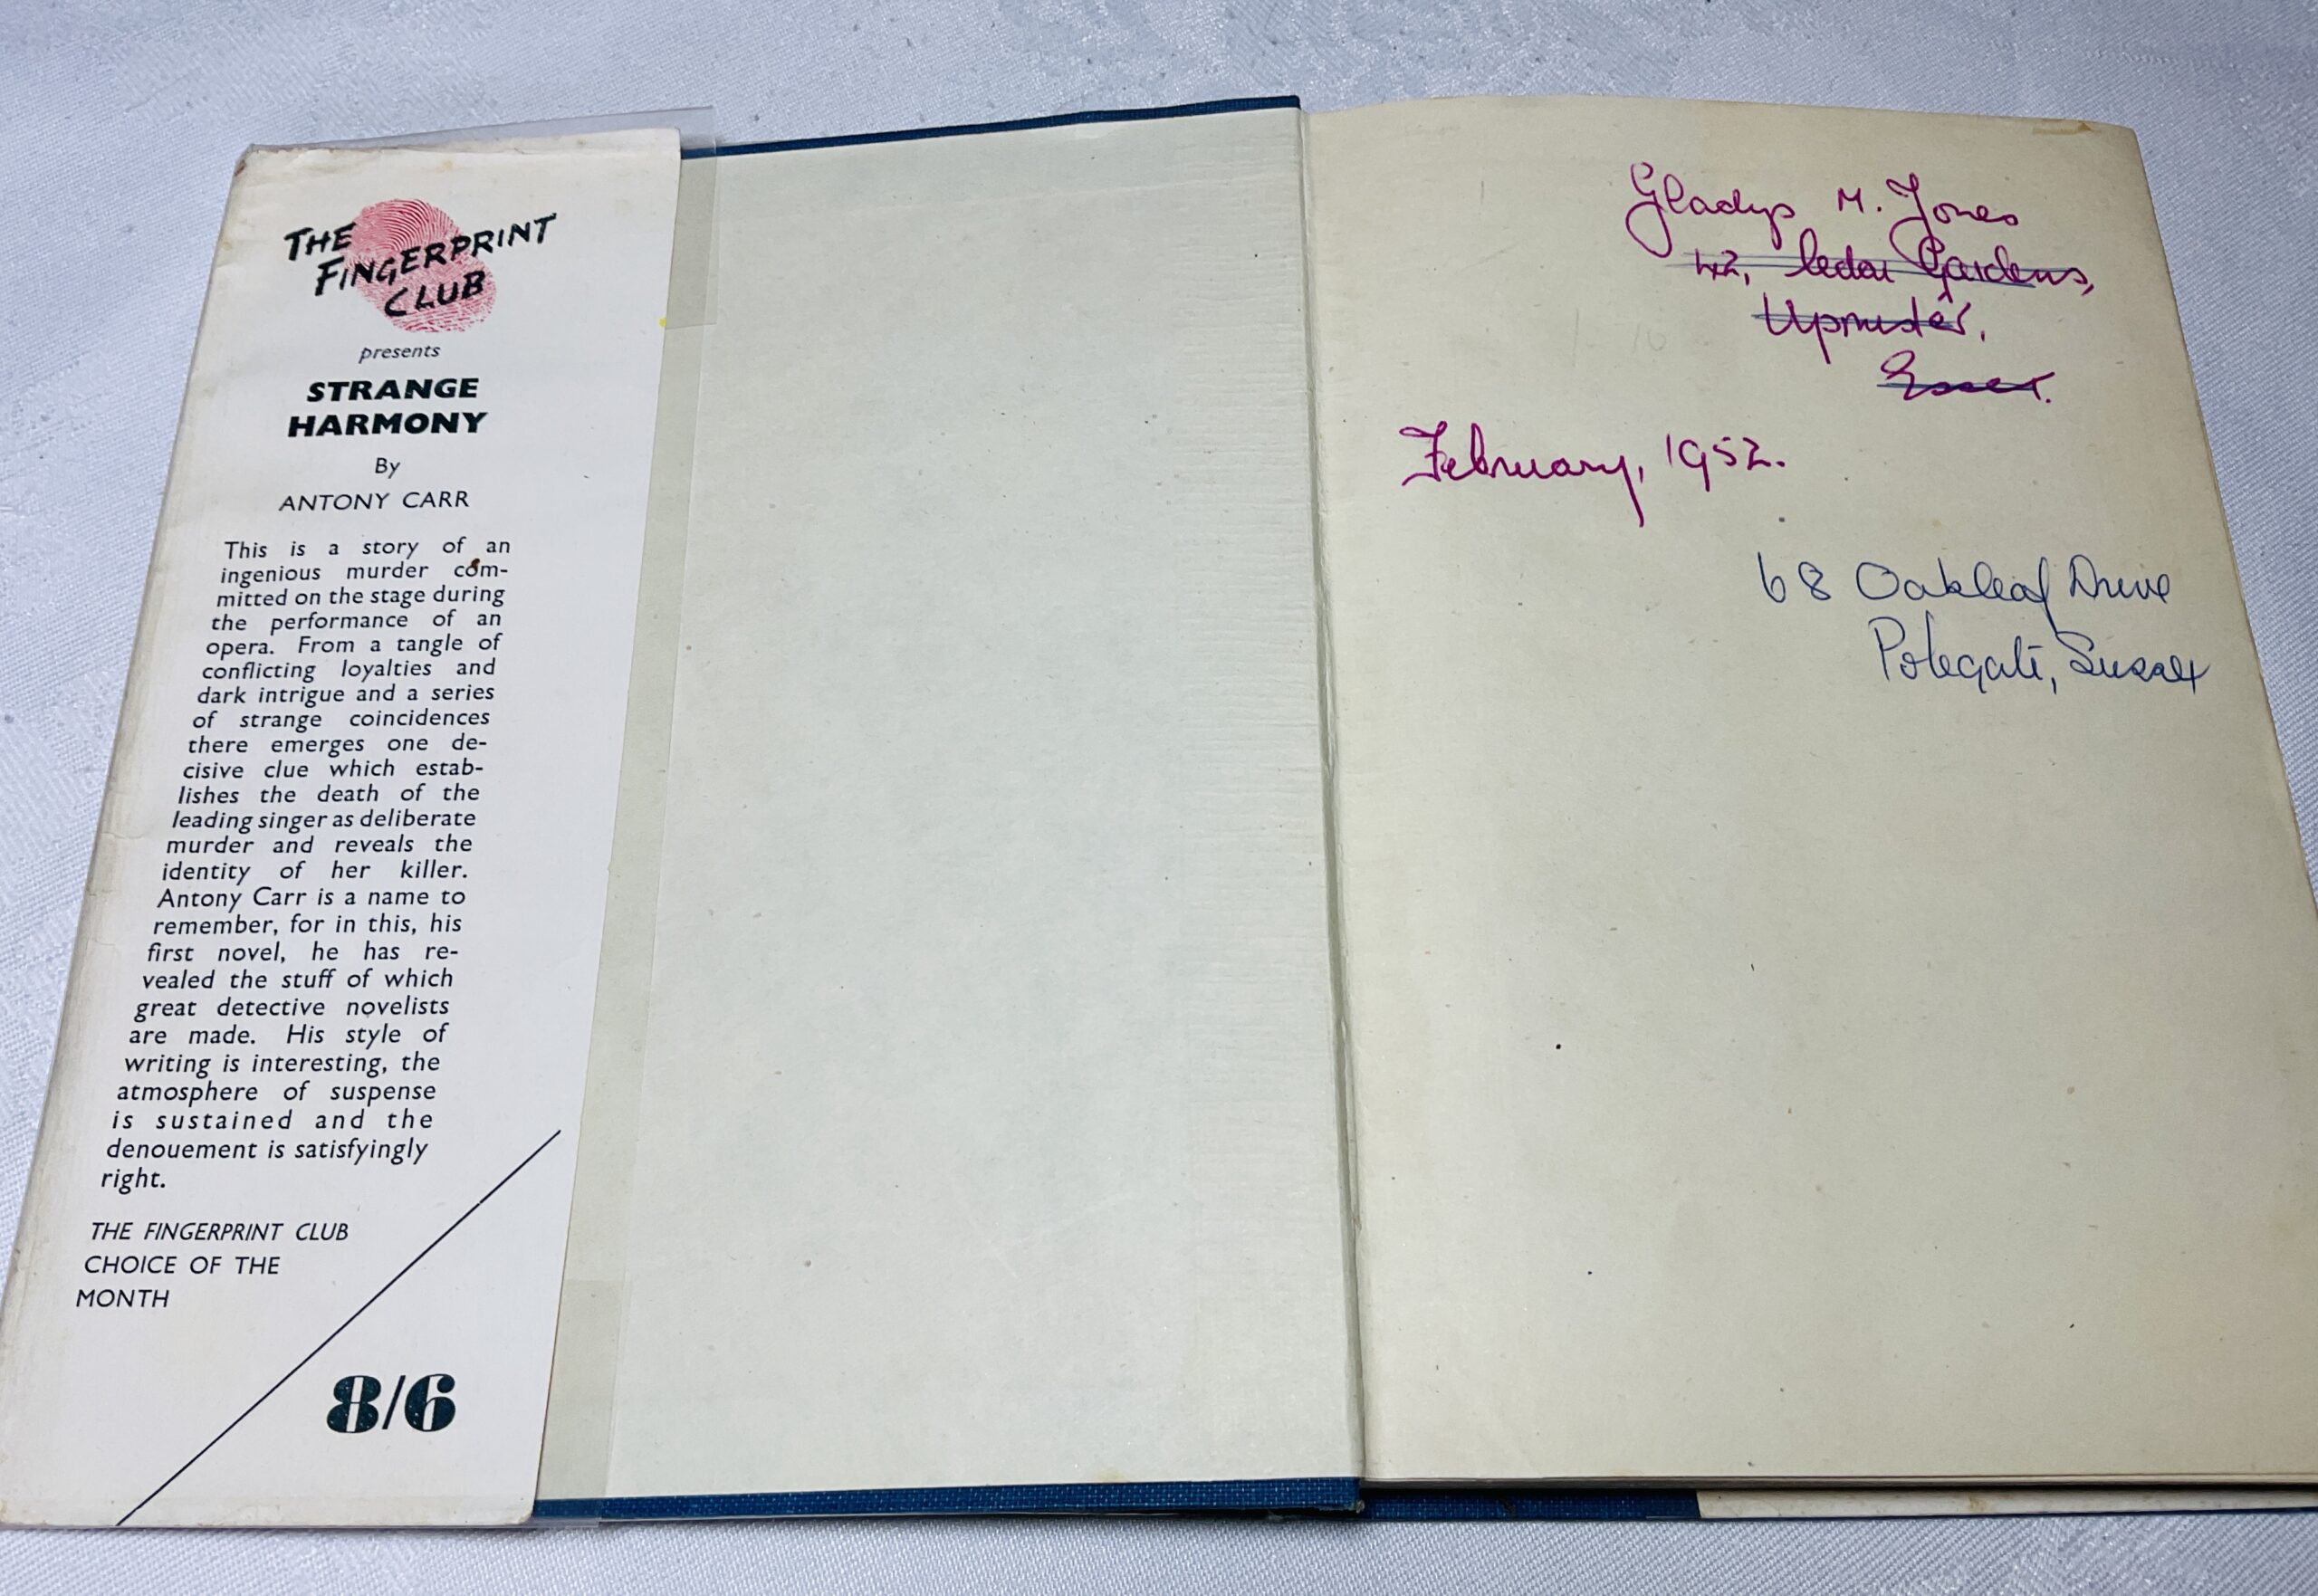 THE
FINGERPRINT
CLUB
presents
STRANGE
HARMONY
By
ANTONY CARR
This is a story of an
ingenious murder com-
mitted on the stage during
the performance of an
opera. From a tangle of
conflicting loyalties and
dark intrigue and a series
of strange coincidences
there emerges one de-
cisive clue which estab-
lishes the death of the
leading singer as deliberate
murder and reveals the
identity of her killer.
Antony Carr is a name to
remember, for in this, his
first novel, he has re-
vealed the stuff of which
great detective novelists
are made. His style of
writing is interesting, the
atmosphere of suspense
is sustained and the
denouement is satisfyingly
right.
THE FINGERPRINT CLUB
CHOICE OF THE
MONTH
8/6
Gladys M. Jones
42, Cedar Gardens,
Upminster,
Essex.
February, 1952.
68 Oakleaf Drive
Polegate, Sussex